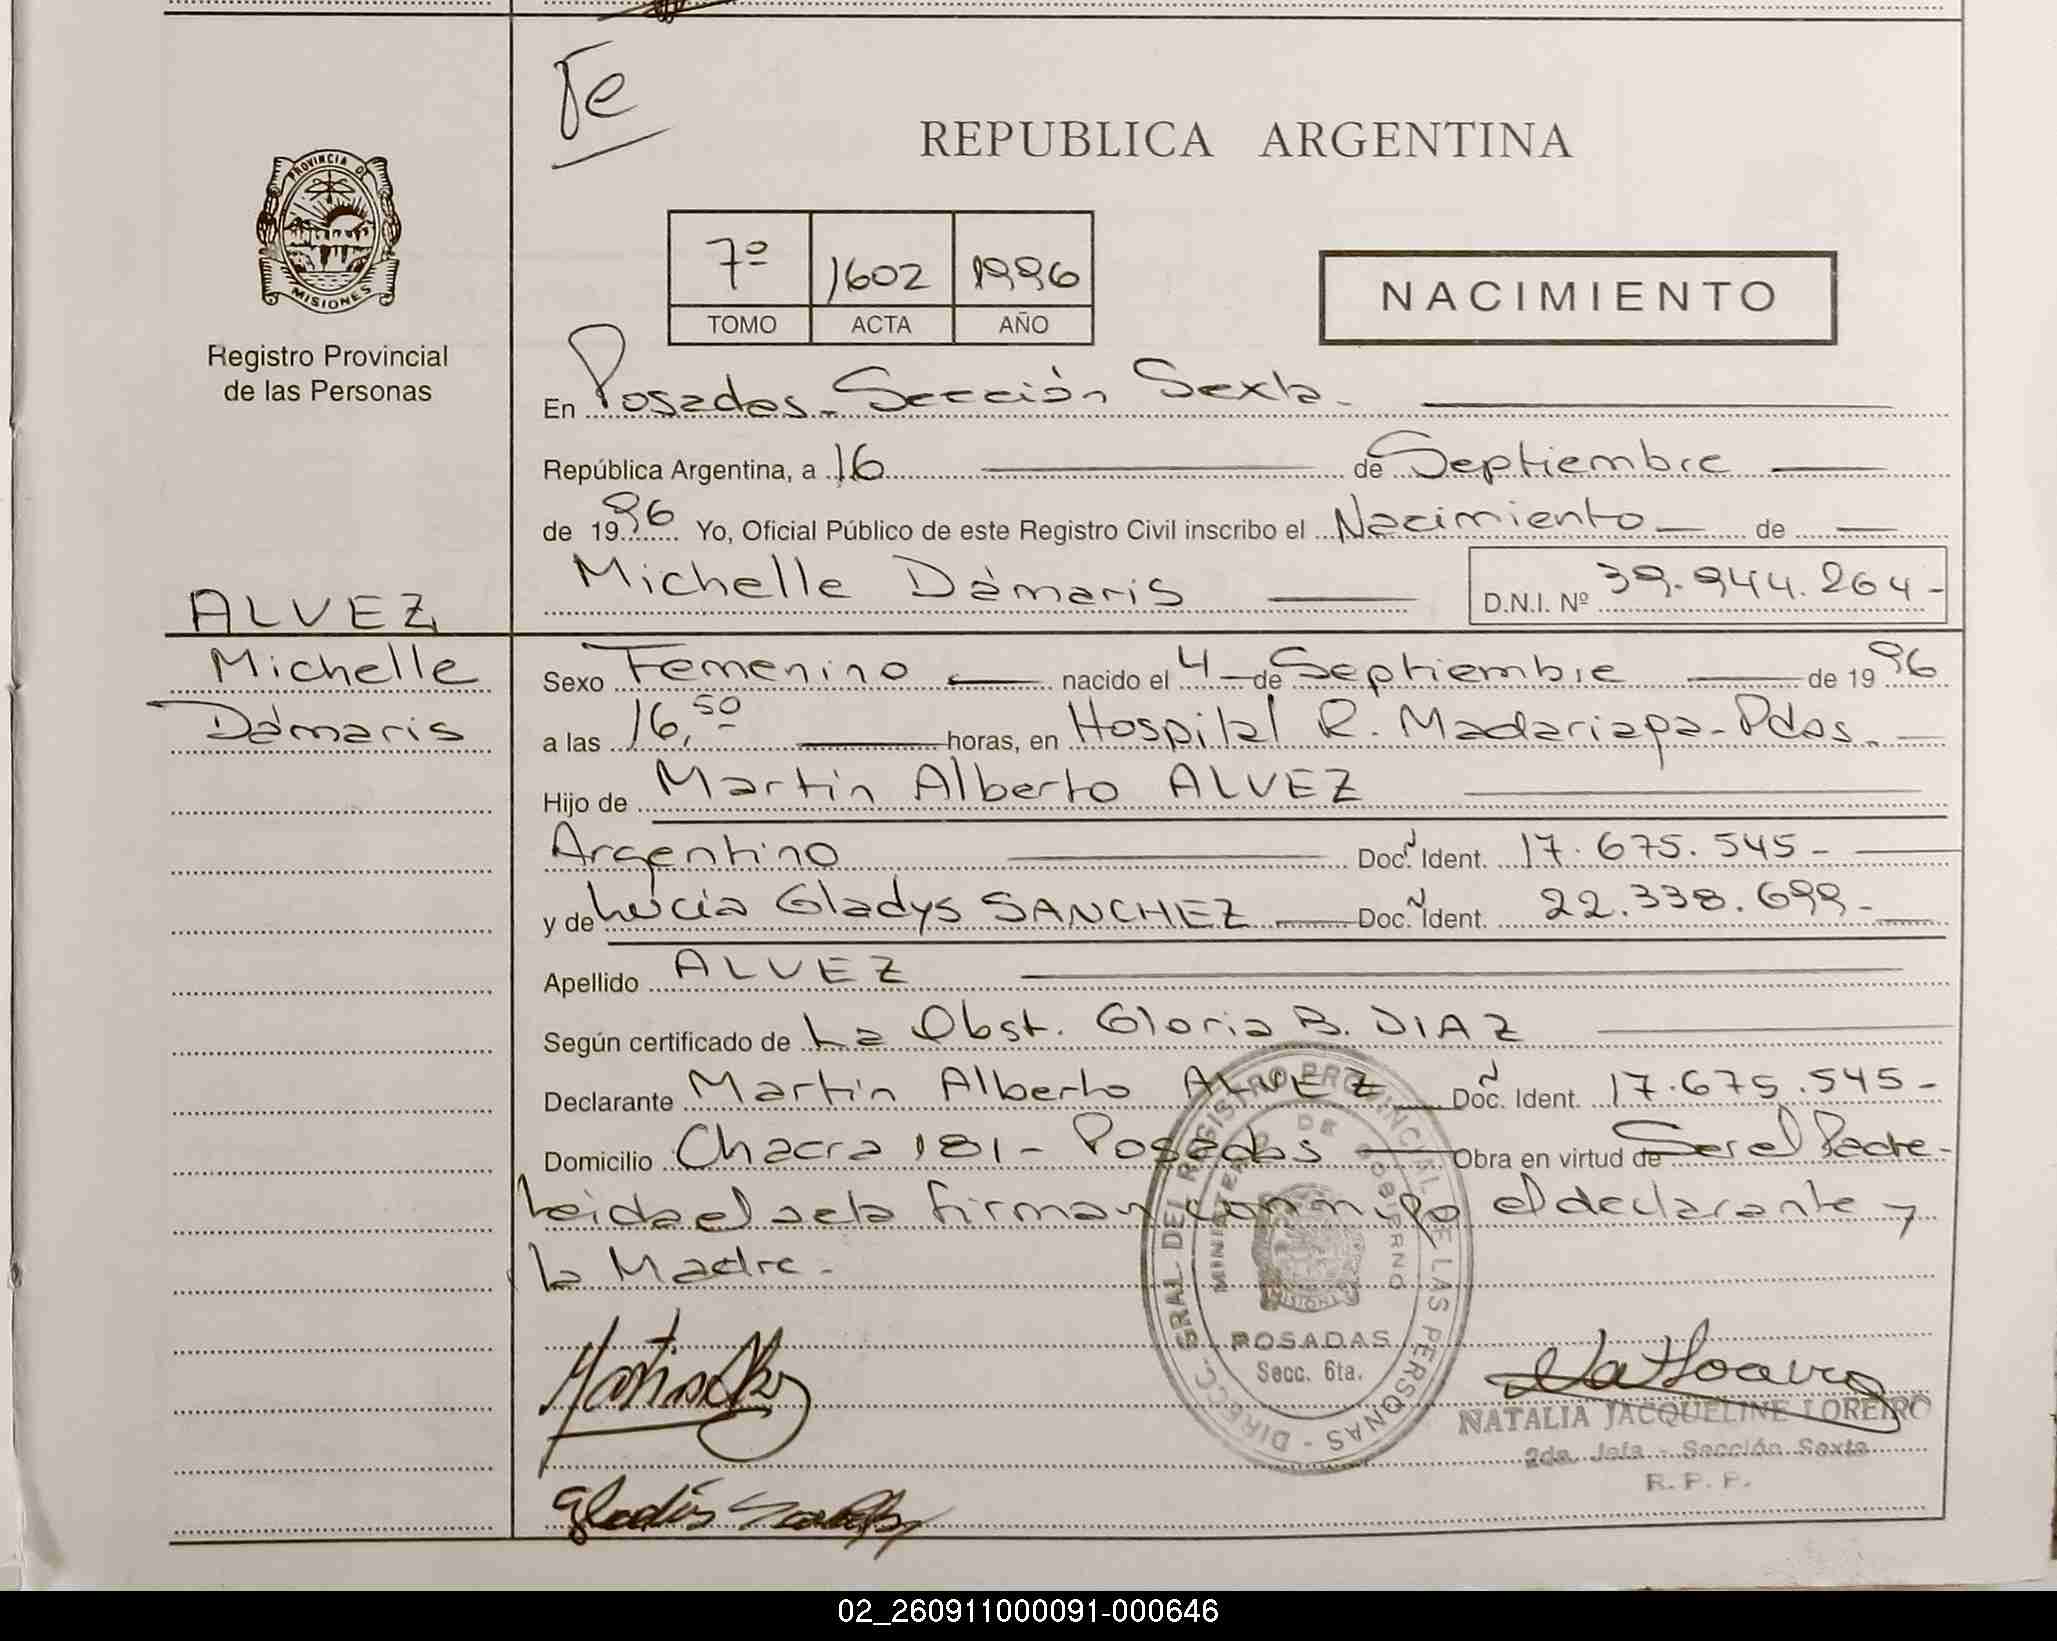 Fe
REPUBLICA ARGENTINA
PROVINCIA D
MISIONES
Registro Provincial
de las Personas
7º 1602 1996
TOMO ACTA AÑO
NACIMIENTO
En Posadas - Sección Sexta.
República Argentina, a 16 de Septiembre
de 1996 Yo, Oficial Público de este Registro Civil inscribo el Nacimiento de
Michelle Dámaris D.N.I. Nº 39.944.264-
ALVEZ,
Michelle
Dámaris
Sexo Femenino nacido el 4 de Septiembre de 1996
a las 16,50 horas, en Hospital R. Madariaga - Pdas.
Hijo de Martín Alberto ALVEZ
Argentino Doc. Ident. 17.675.545-
y de Lucía Gladys SANCHEZ Doc. Ident. 22.338.699-
Apellido ALVEZ
Según certificado de La Obst. Gloria B. DIAZ
Declarante Martín Alberto ALVEZ Doc. Ident. 17.675.545-
Domicilio Chacra 181 - Posadas Obra en virtud de Ser el Padre-
Leida el acta firman conmigo el declarante y
la Madre.-
DIRECC. GRAL DEL REGISTRO PROVINCIAL DE LAS PERSONAS -
MINISTERIO DE GOBIERNO
MISIONES
POSADAS
Secc. 6ta.
NATALIA JACQUELINE LOREIRO
2da. Jefa - Sección Sexta
R.P.P.
Gladis
02_260911000091-000646